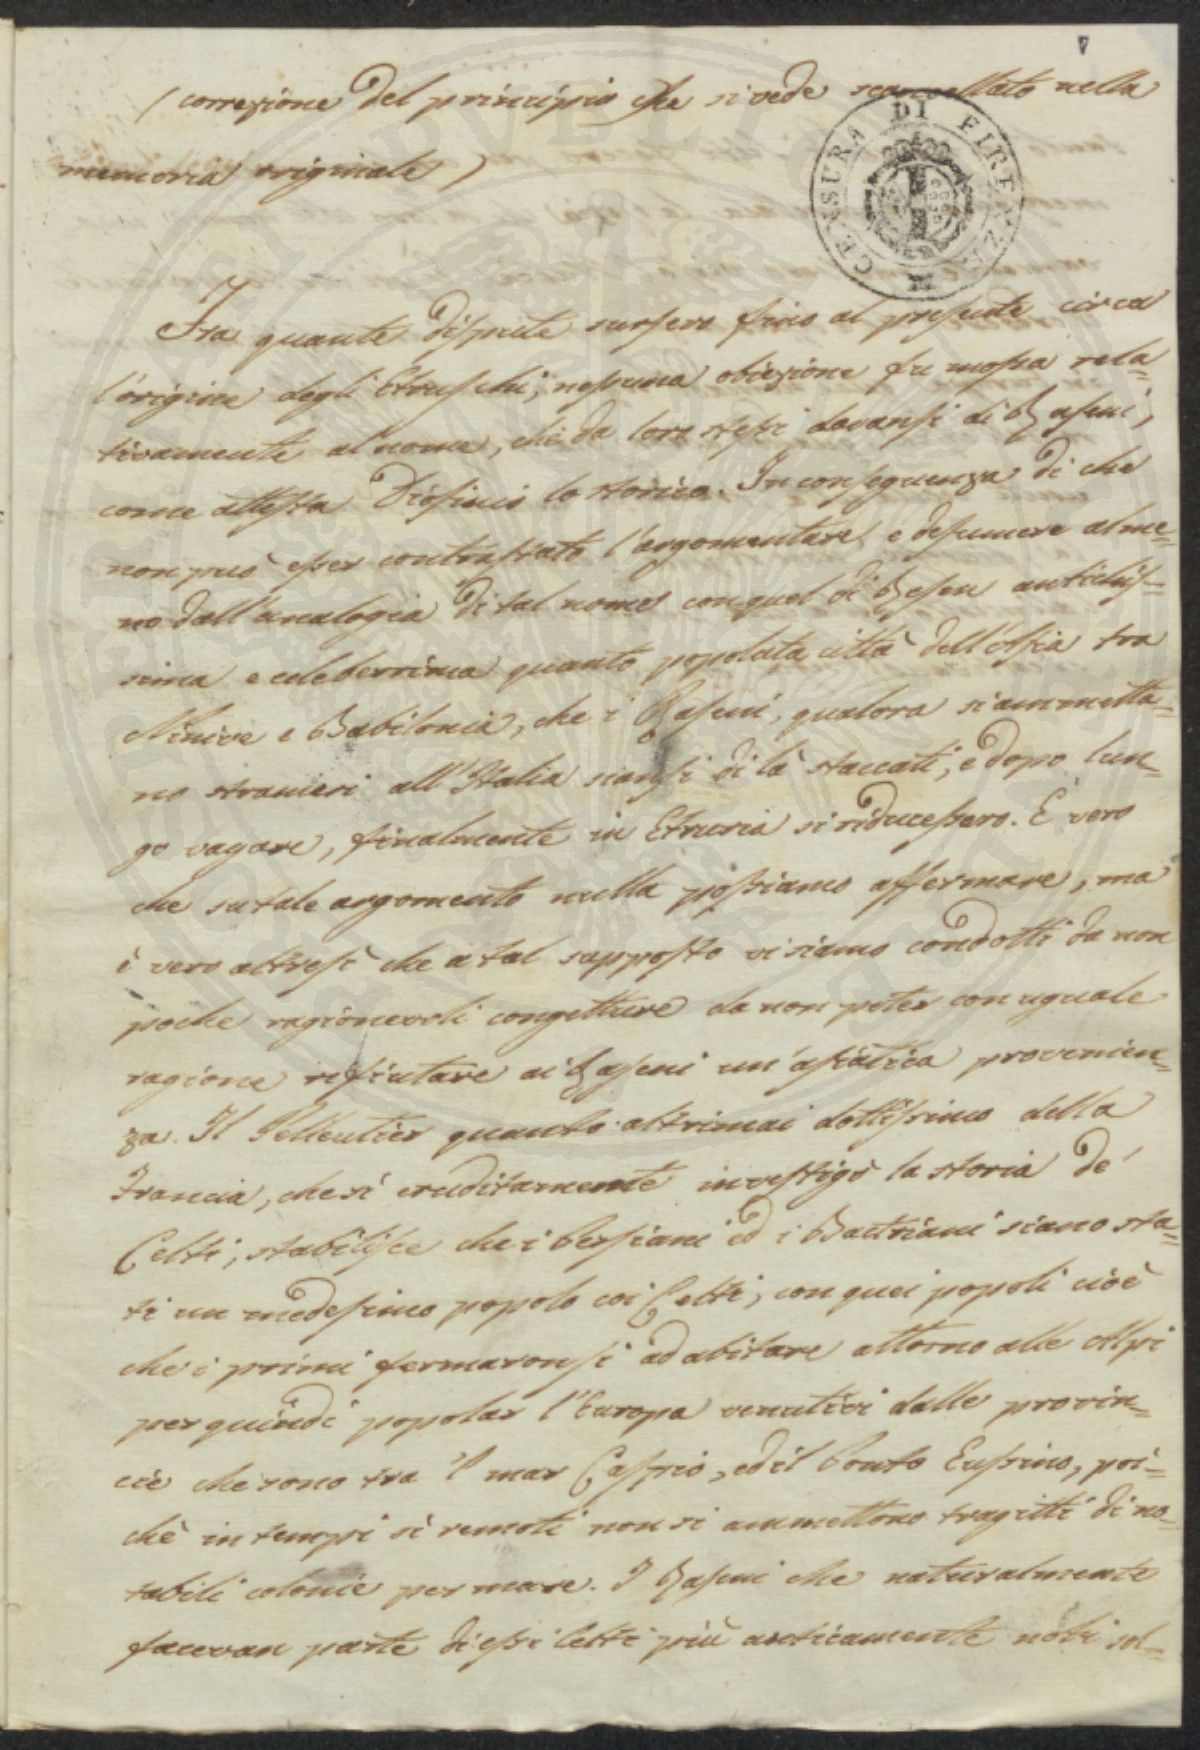 V
(correzione del principio che si vede scancellato nella
memoria originale)
CENSURA DI FIRENZE
Fra quante dispute sursero fino al presente circa
l'origine degli Etruschi, nessuna obiezione fu mossa rela=
tivamente al nome, che da loro stessi davansi di Raseni,
come attesta Dionisio lo storico. In conseguenza di che
non può esser contrastato l'argomentare e desumere alme=
no dall'analogia di tal nome con quel di Resen antichis=
sima e celeberrima quanto popolata città dell'Asia tra
Ninive e Babilonia, che i Raseni, qualora si ammetta=
no stranieri all'Italia siansi di là staccati, e dopo lun=
go vagare, finalmente in Etruria si riducessero. È vero
che su tale argomento nulla possiamo affermare, ma
è vero altresì che a tal supposto vi siamo condotti da non
poche ragionevoli congetture da non poter con uguale
ragione rifiutare ai Raseni un'asiatica provenien=
za. Il Pelleutier quanto altrimai dottissimo della
Francia, che sì eruditamente investigò la storia de'
Celti, stabilisce che i Persiani ed i Battriani siano sta=
ti un medesimo popolo coi Celti, con quei popoli cioè
che i primi fermaronsi ad abitare attorno alle Alpi
per quindi popolar l'Europa venutivi dalle provin=
cie che sono tra 'l mar Caspio, ed il Ponto Eussino, poi=
chè in tempi sì remoti non si ammettono tragitti di no=
tabili colonie per mare. I Raseni che naturalmente
facevan parte di essi Celti più anticamente noti sol=